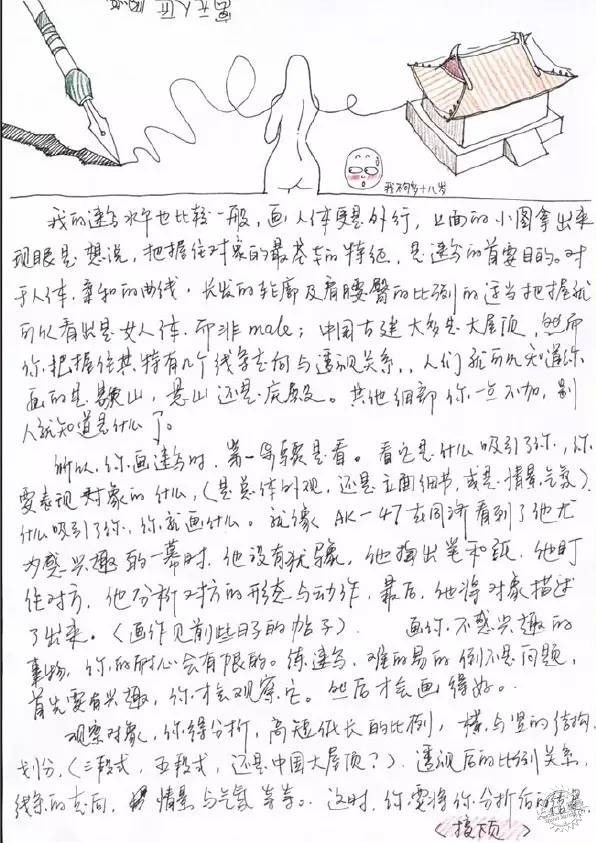 我不过十八岁
我的速写水平也比较一般，画人体更是外行，上面的小图拿出来
现眼是想说，把握住对象的最基本的特征，是速写的首要目的。对
于人体，柔和的曲线，长发的轮廓及肩腰臀的比例的适当把握就
可以看出是女人体，而非male；中国古建大多是大屋顶，然而
你把握住其特有几个线条走向与透视关系，人们就可以知道你
画的是歇山，悬山还是庑殿。其他细部你一点不加，别
人就知道是什么了。
所以，你画速写时，第一步骤是看。看它是什么吸引了你，你
要表现对象的什么，（是总体外观，还是立面细节，或是情景气氛）
什么吸引了你，你就画什么。就像AK-47在同济看到了他尤
为感兴趣的一幕时，他没有犹豫，他掏出笔和纸，他盯
住对方，他分析对方的形态与动作，最后，他将对象描述
了出来。（画作见前些日子的帖子）　画你不感兴趣的
事物，你的耐心会有限的。练速写，难的易的倒不是问题，
首先要有兴趣，你才会观察它。然后才会画得好。
观察对象，你得分析，高短低长的比例，横与竖的结构
划分，（三段式，五段式，还是中国大屋顶？）．透视后的比例关系，
线条的走向，情景与气氛等等。这时，你要将你分析后的
＜接下页＞